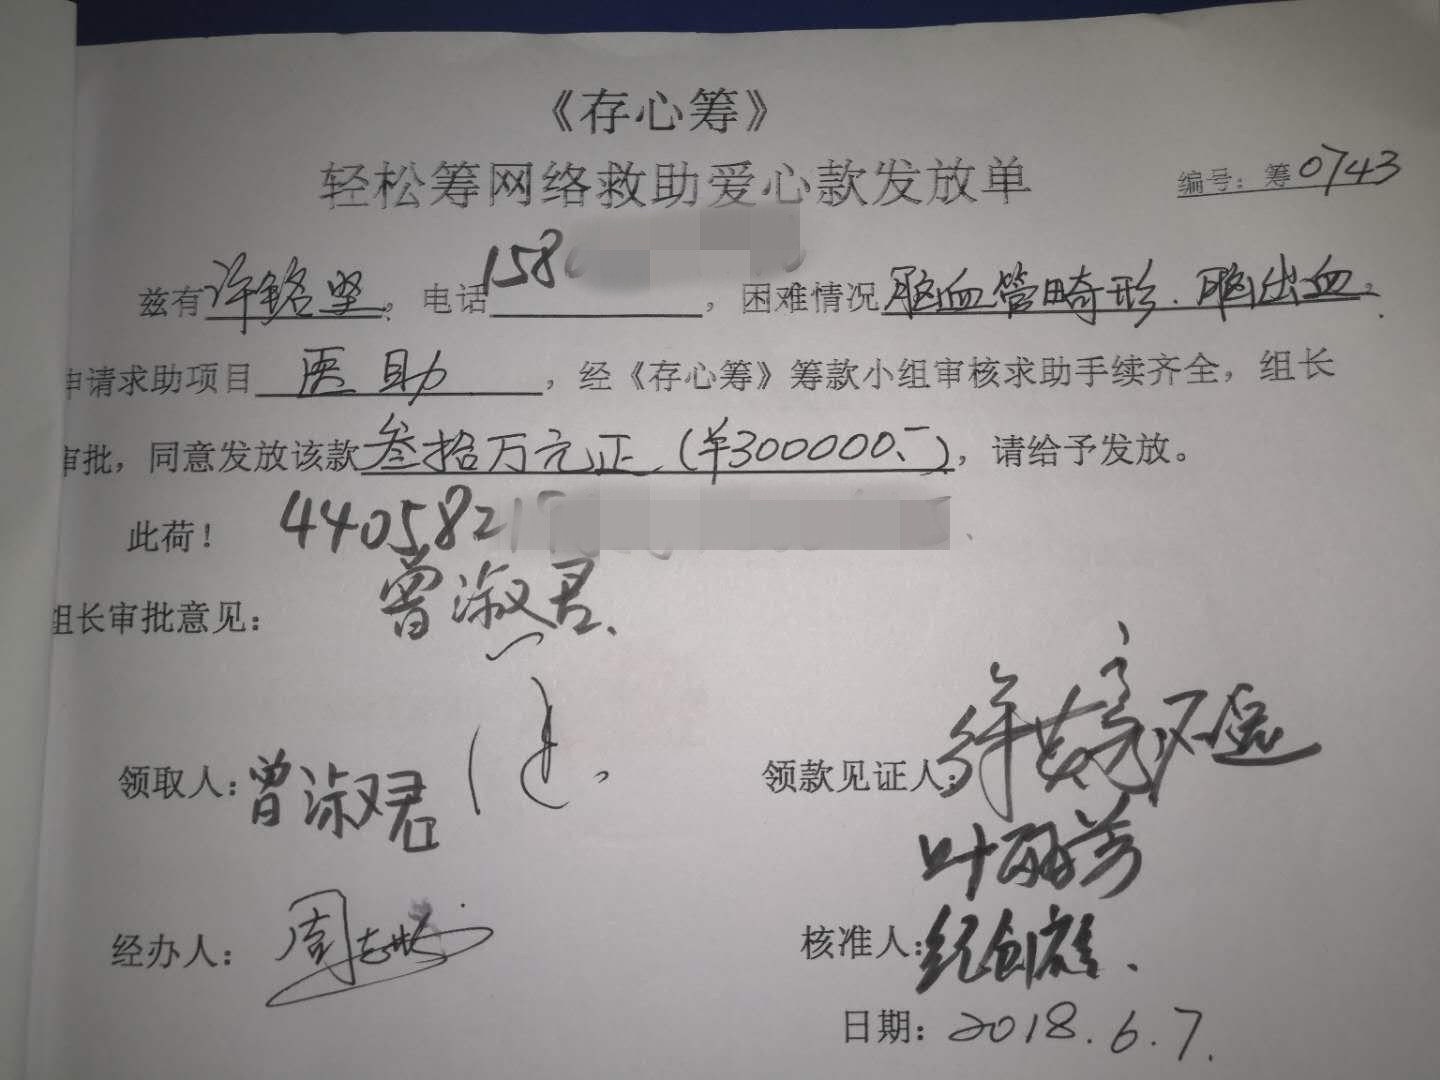 《存心筹》
轻松筹网络救助爱心款发放单
编号：筹0743
兹有许铭坚，电话158，困难情况脑血管畸形、脑出血，
申请求助项目医助，经《存心筹》筹款小组审核求助手续齐全，组长
审批，同意发放该款叁拾万元正（¥300000.-），请给予发放。
此荷！ 4405821
曾淑君
组长审批意见：
领取人：曾淑君
领款见证人：
叶丽芳
经办人：周
核准人：纪创雄
日期：2018.6.7.